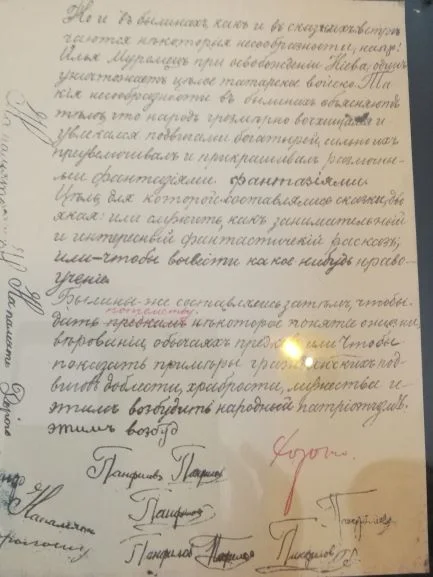 Но и въ былинахъ, какъ и въ сказкахъ встрѣ
чаются нѣкоторыя несообразности, напр:
Илья Муромецъ при освобожденіи Кіева, одинъ
уничтожаетъ цѣлое татарское войско. Та
кія несообразности въ былинахъ объясняются
тѣмъ, что народъ чрезмѣрно восхищаясь и
увлекаясь подвигами богатырей, сильно ихъ
преувеличивалъ и прикрашивалъ различны-
ми фантазіями. фантазіями.
Цѣль, для которой составлялись сказки, дво
якая: или служить, какъ занимательный
и интересный фантастическій разсказъ,
или чтобы вывести какое нибудь нраво-
ученіе.
Былины же составлялись затѣмъ, чтобы
потомству
дать предкамъ нѣкоторое понятіе о жизни,
вѣрованіи, обычаяхъ предковъ, или чтобы
показать примѣры гражданскихъ под-
виговъ, доблести, храбрости, мужества и
этимъ возбудить народный патріотизмъ.
этимъ возбуд
Хорошо.
Панфиловъ Панфиловъ
Панфиловъ
Панфиловъ Панфиловъ Панфиловъ
На память
На память